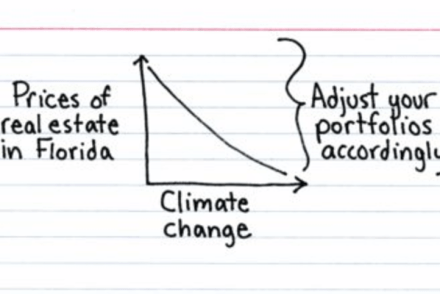 Prices of
real estate
in Florida
Adjust your
portfolios
accordingly
Climate
change